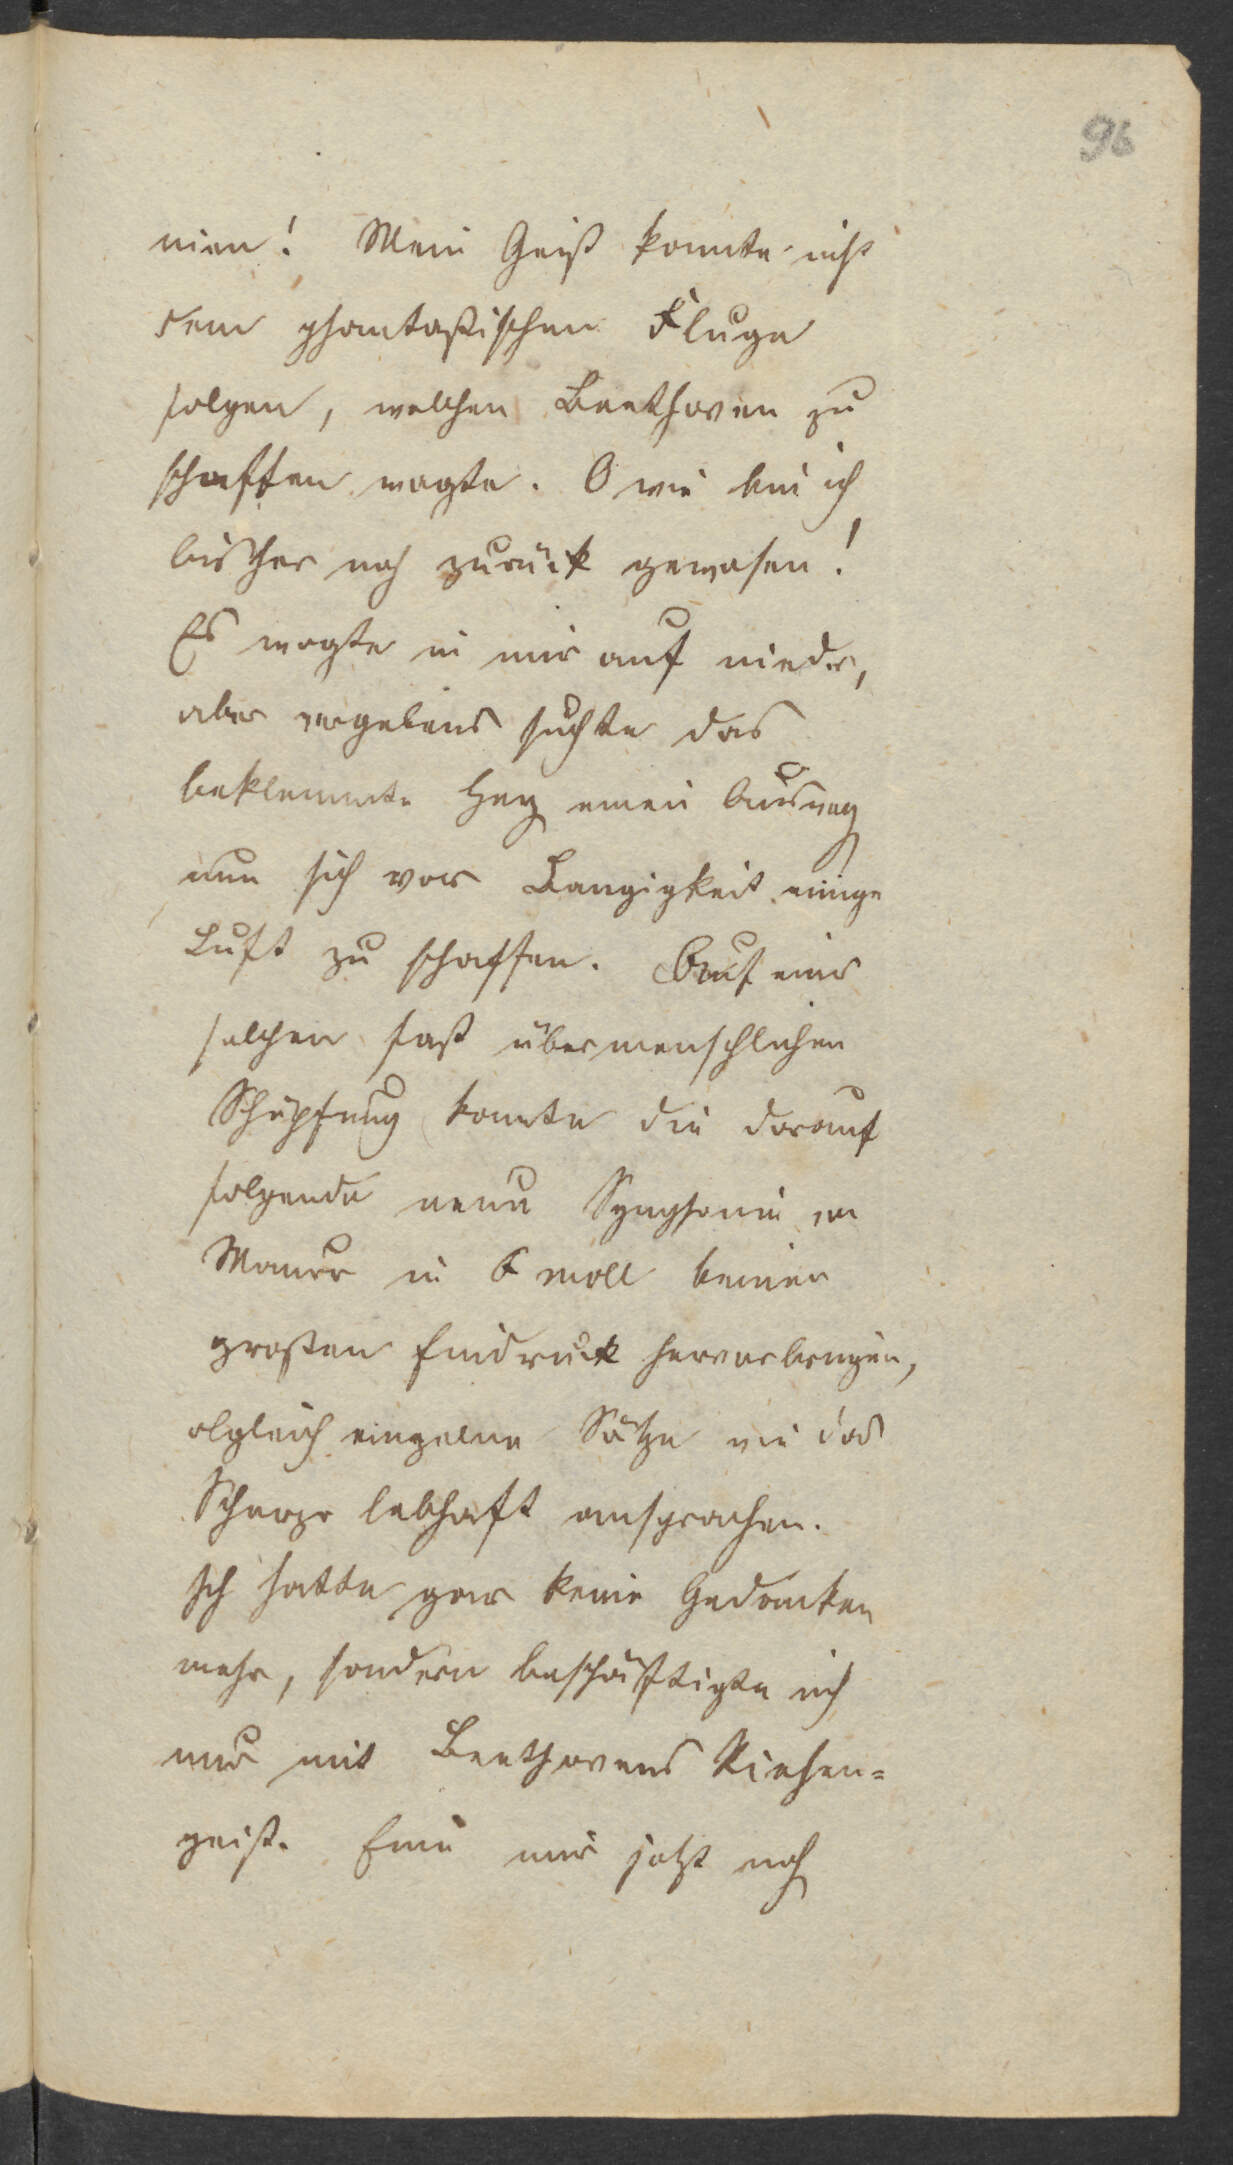 96
nien! Mein Geist konnte nicht
dem phantastischen Fluge
folgen, welchen Beethoven zu
schaffen wagte. O wie bin ich
bisher noch zurück gewesen!
Es wogte in mir auf nieder,
aber vergebens suchte das
beklemmte Herz einen Ausweg
um sich vor Bangigkeit einige
Luft zu schaffen. Auf eine
solchen fast übermenschlichen
Schöpfung konnte die darauf
folgende neue Symphonie v
Maurer in F moll keinen
großen Eindruck hervorbringen,
obgleich einzelne Sätze wie das
Scherzo lebhaft ansprachen.
Ich hatte gar keine Gedanken
mehr, sondern beschäftigte mich
nur mit Beethovens Riesen=
geist. Eine mir jetzt noch